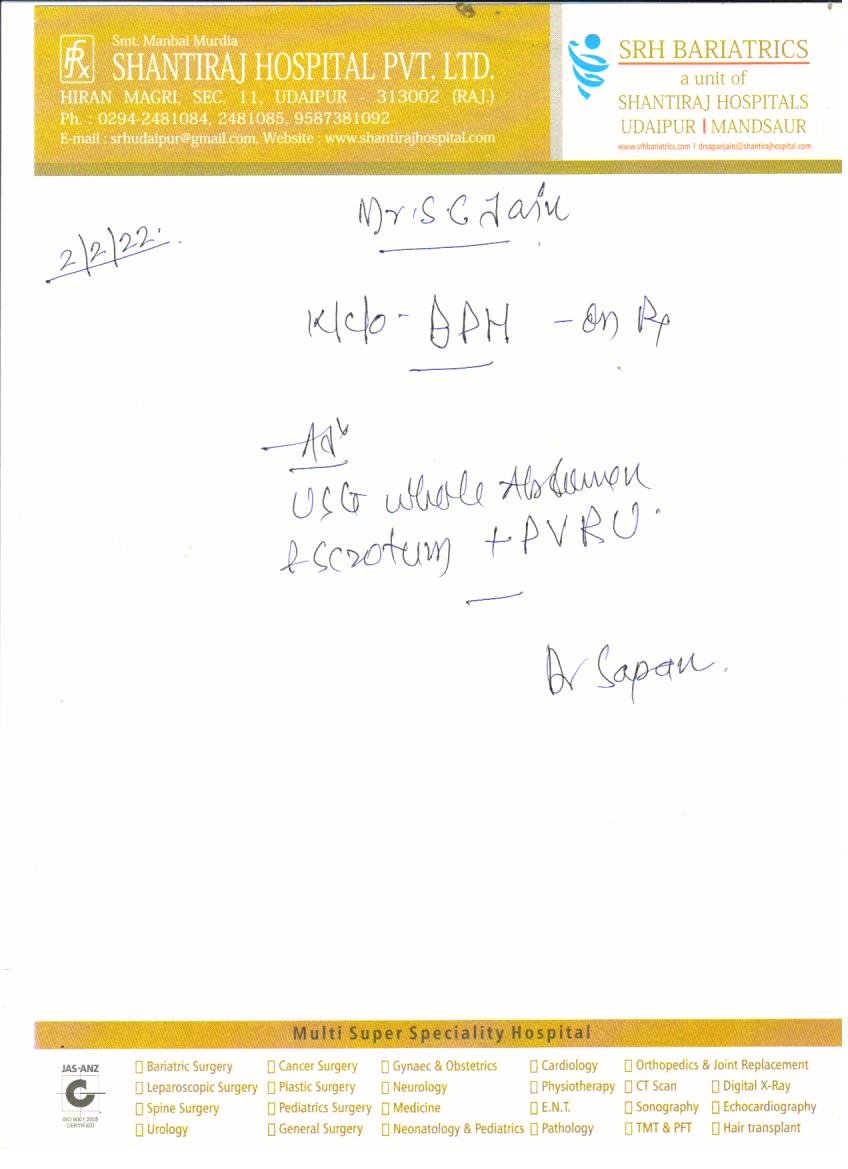 Smt. Manbai Murdia
SHANTIRAJ HOSPITAL PVT. LTD.
HIRAN MAGRI, SEC. 11, UDAIPUR - 313002 (RAJ.)
Ph. : 0294-2481084, 2481085, 9587381092
E-mail : srhudaipur@gmail.com, Website : www.shantirajhospital.com
SRH BARIATRICS
a unit of
SHANTIRAJ HOSPITALS
UDAIPUR | MANDSAUR
www.srhbariatrics.com | drsapanjain@shantirajhospital.com
Mr. S. C Jain
2/2/22.
K/c/o - BPH - on Rx
Adv
USG whole Abdomen
& Scrotum + PVRU.
Dr Sapan.
Multi Super Speciality Hospital
JAS-ANZ
ISO 9001:2008
CERTIFIED
Bariatric Surgery
Leparoscopic Surgery
Spine Surgery
Urology
Cancer Surgery
Plastic Surgery
Pediatrics Surgery
General Surgery
Gynaec & Obstetrics
Neurology
Medicine
Neonatology & Pediatrics
Cardiology
Physiotherapy
E.N.T.
Pathology
Orthopedics & Joint Replacement
CT Scan
Digital X-Ray
Sonography
Echocardiography
TMT & PFT
Hair transplant